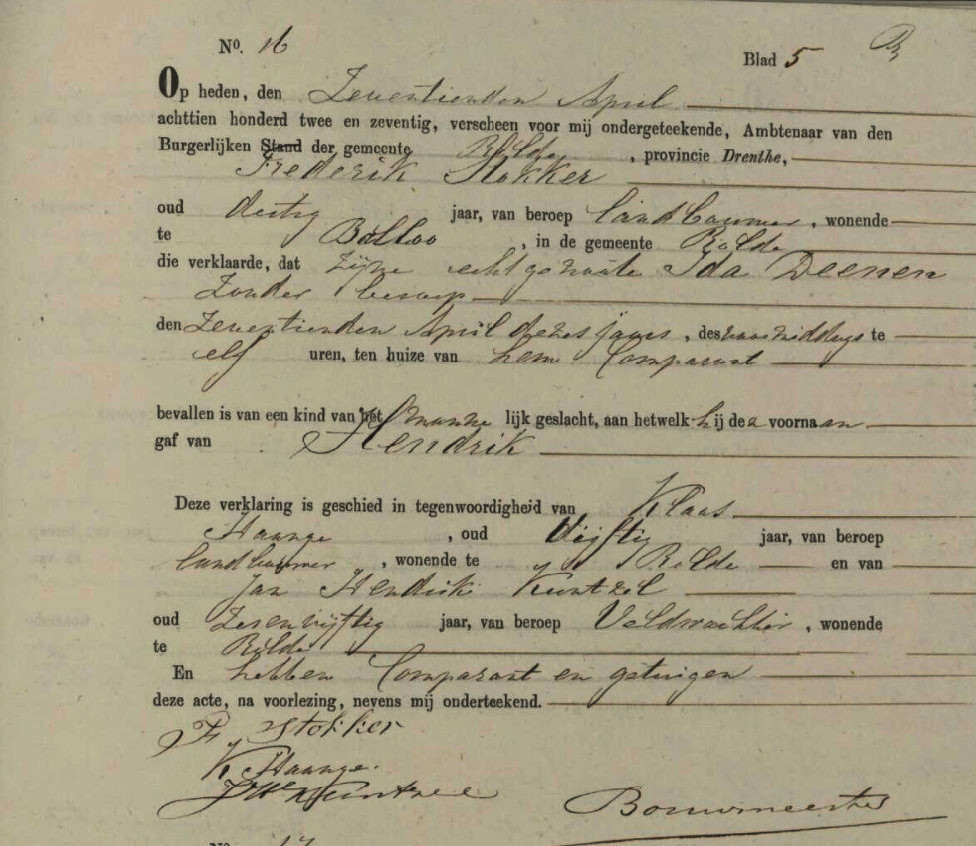 No. 16
Blad 5
Op heden, den Zeventienden April
achttien honderd twee en zeventig, verscheen voor mij ondergeteekende, Ambtenaar van den
Burgerlijken Stand der gemeente Rolde, provincie Drenthe,
Frederik Stokker
oud dertig jaar, van beroep landbouwer, wonende
te Balloo, in de gemeente Rolde
die verklaarde, dat zijne echtgenoote Ida Deenen
zonder beroep
den Zeventienden April dezes jaars, des voormiddags te
elf uren, ten huize van hem Comparant
bevallen is van een kind van het manne lijk geslacht, aan hetwelk hij de voornaam
gaf van Hendrik
Deze verklaring is geschied in tegenwoordigheid van Klaas
Haange, oud vijftig jaar, van beroep
landbouwer, wonende te Rolde en van
Jan Hendrik
oud jaar, van beroep Veldwachter, wonende
te Rolde
En hebben Comparant en getuigen
deze acte, na voorlezing, nevens mij onderteekend.
F Stokker
K Haange.
Bouwmeester
No. 17